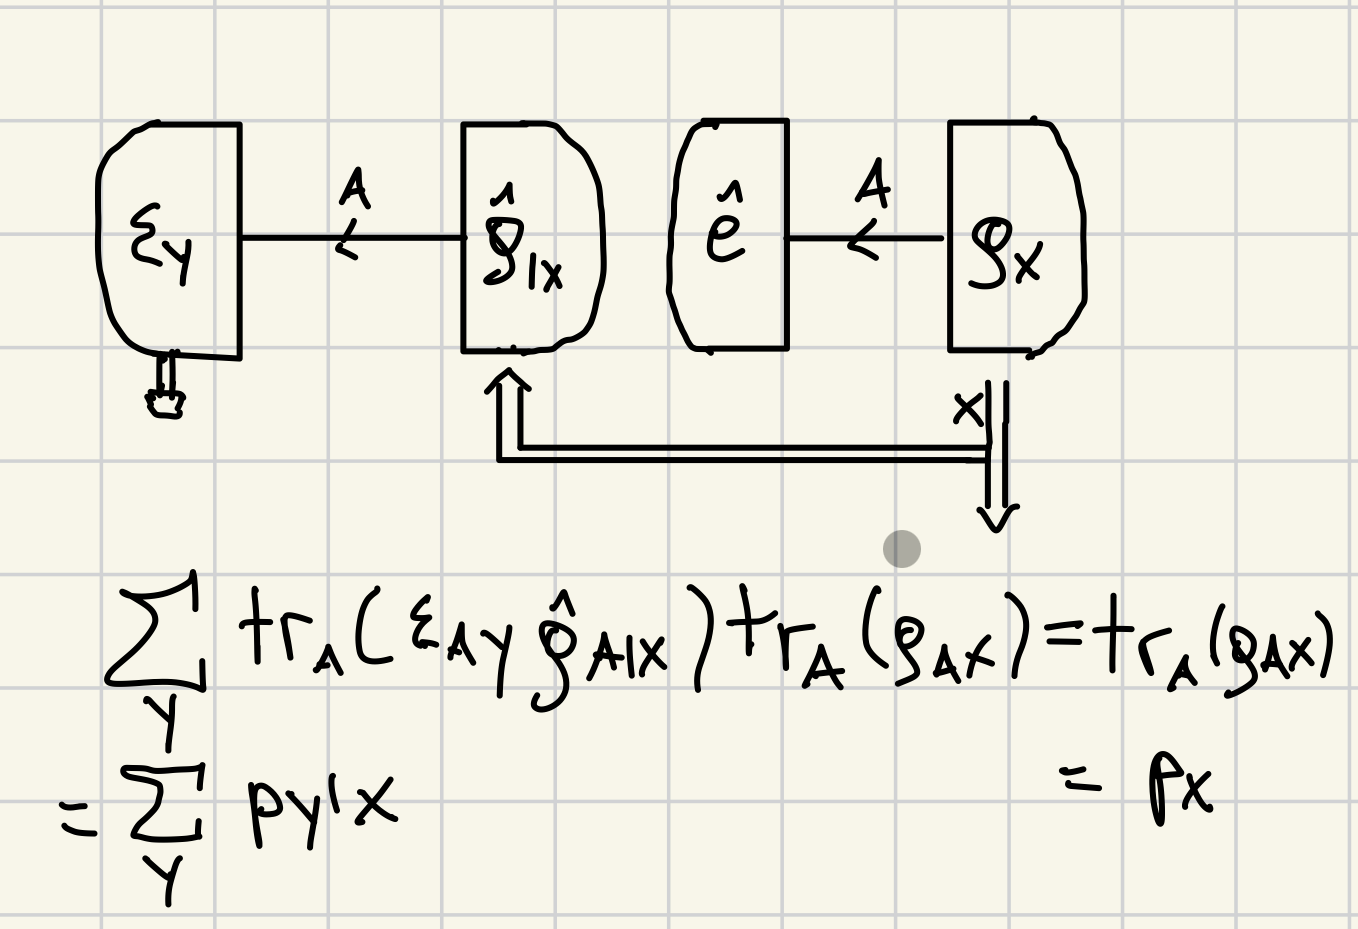 A A
ℰy ρ̂|x ê ρx
x
∑ tr_A(ℰ_Ay ρ̂_A|x) tr_A(ρ_Ax) = tr_A(ρ_Ax)
y
= ∑ py'x = px
y